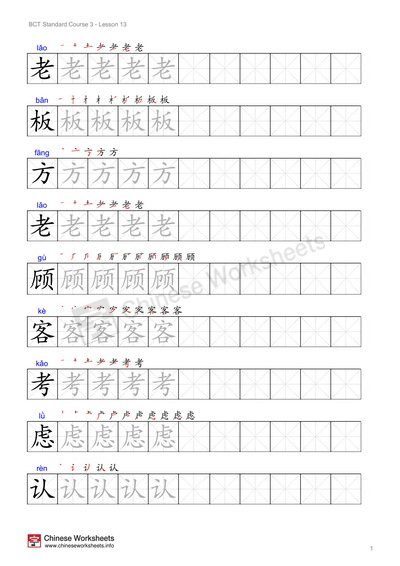 BCT Standard Course 3 - Lesson 13
lǎo
老 老 老 老 老
bǎn
板 板 板 板 板
fāng
方 方 方 方 方
lǎo
老 老 老 老 老
gù
顾 顾 顾 顾 顾
kè
客 客 客 客 客
kǎo
考 考 考 考 考
lǜ
虑 虑 虑 虑 虑
rèn
认 认 认 认 认
Chinese Worksheets
Chinese Worksheets
www.chineseworksheets.info
1